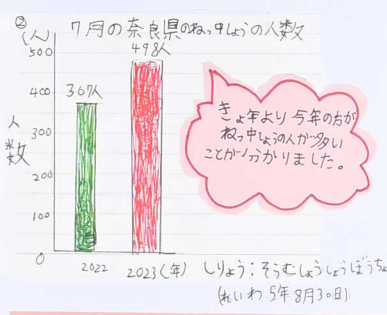 ②
7月の奈良県のねっ中しょうの人数
(人)
500
400
300
200
100
0
人数
367人
498人
2022
2023(年)
きょ年より今年の方が
ねっ中しょうの人が多い
ことが分かりました。
しりょう:そうむしょうしょうぼうちょ
(れいわ5年8月30日)